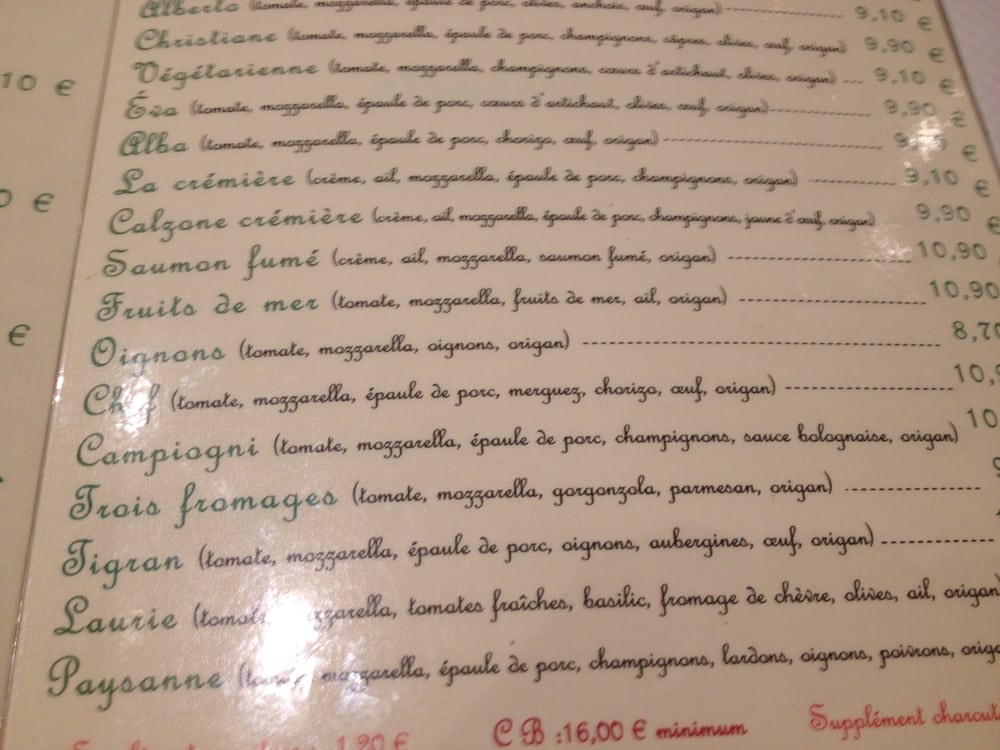 Alberto (tomate, mozzarella, épaule de porc, olives, anchois, œuf, origan) 9,10 €
10 €
Christiane (tomate, mozzarella, épaule de porc, champignons, câpres, olives, œuf, origan) 9,90 €
Végétarienne (tomate, mozzarella, champignons, cœurs d'artichaut, olives, origan) 9,10 €
Éva (tomate, mozzarella, épaule de porc, cœurs d'artichaut, olives, œuf, origan) 9,90 €
Alba (tomate, mozzarella, épaule de porc, chorizo, œuf, origan) €
La crémière (crème, ail, mozzarella, épaule de porc, champignons, origan) 9,10 €
0 €
Calzone crémière (crème, ail, mozzarella, épaule de porc, champignons, jaune d'œuf, origan) 9,90 €
Saumon fumé (crème, ail, mozzarella, saumon fumé, origan) 10,90
Fruits de mer (tomate, mozzarella, fruits de mer, ail, origan) 10,90
€
Oignons (tomate, mozzarella, oignons, origan) 8,70
Chef (tomate, mozzarella, épaule de porc, merguez, chorizo, œuf, origan) 10,
Campiogni (tomate, mozzarella, épaule de porc, champignons, sauce bolognaise, origan) 10
Trois fromages (tomate, mozzarella, gorgonzola, parmesan, origan)
Tigran (tomate, mozzarella, épaule de porc, oignons, aubergines, œuf, origan)
Laurie (tomate, mozzarella, tomates fraîches, basilic, fromage de chèvre, olives, ail, origan
Paysanne (tomate, mozzarella, épaule de porc, champignons, lardons, oignons, poivrons, orig
1,20 € CB :16,00 € minimum Supplément charcut